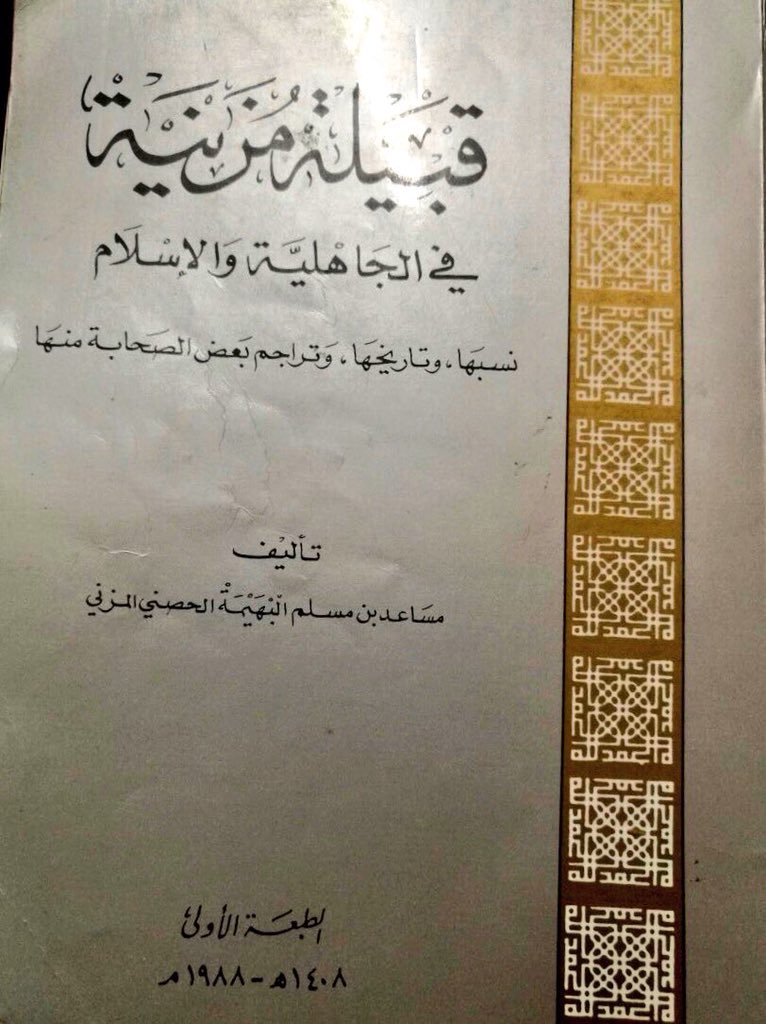 قَبِيلَة مُزَينَة
في الجَاهليَّة وَالإسْلَام
نسبهَا، وتاريخهَا، وَتراجم بَعض الصَحابة منهَا
تأليف
مسَاعد بن مسلم البْهَيْمَةْ الحصني المزني
الطبعَة الأولى
١٤٠٨هـ - ١٩٨٨م